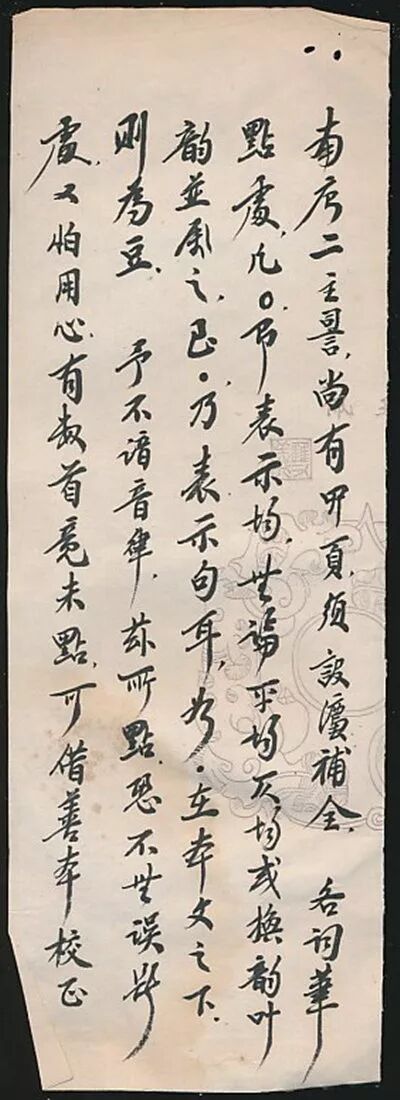 南唐二主䛐,尚有頁,須設灋補全.各詞筆
點處,凡○即表示均,無論平均仄均或換韻叶
韻並屬之,。乃表示句耳,若·在本文之下.
則為豆.予不諳音律,茲所點,恐不無誤斷
處,又怕用心,有數首竟未點,可借善本校正